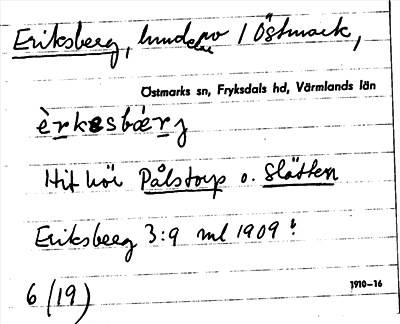 Eriksberg, hmd 1 Östmark,
Östmarks sn, Fryksdals hd, Värmlands län
èrkesbærj
Hit hör Pålstorp o. Slätten
Eriksberg 3:9 ml 1909!
6 (19)
1910–16